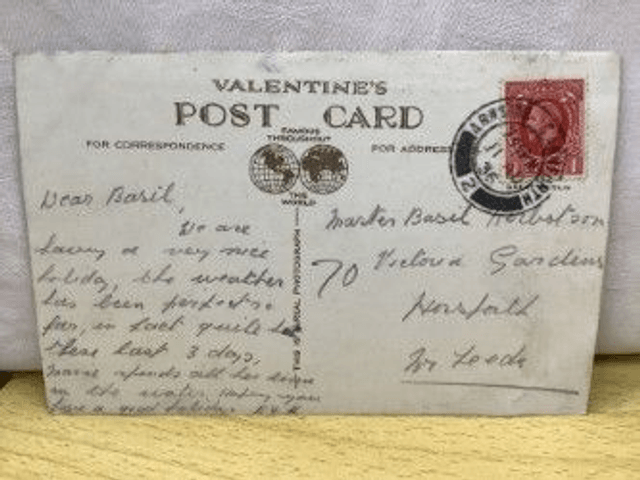 VALENTINE'S
POST CARD
FOR CORRESPONDENCE
FAMOUS
THROUGHOUT
FOR ADDRESS
THE
WORLD
THIS IS A REAL PHOTOGRAPH
Dear Basil,
We are
having a very nice
holiday, the weather
has been perfect so
far, in fact quite hot
these last 3 days,
spends all her time
in the water, hoping you
have a good holiday.
Master Basil Herbertson
70 Victoria Gardens
Horsforth
Nr Leeds